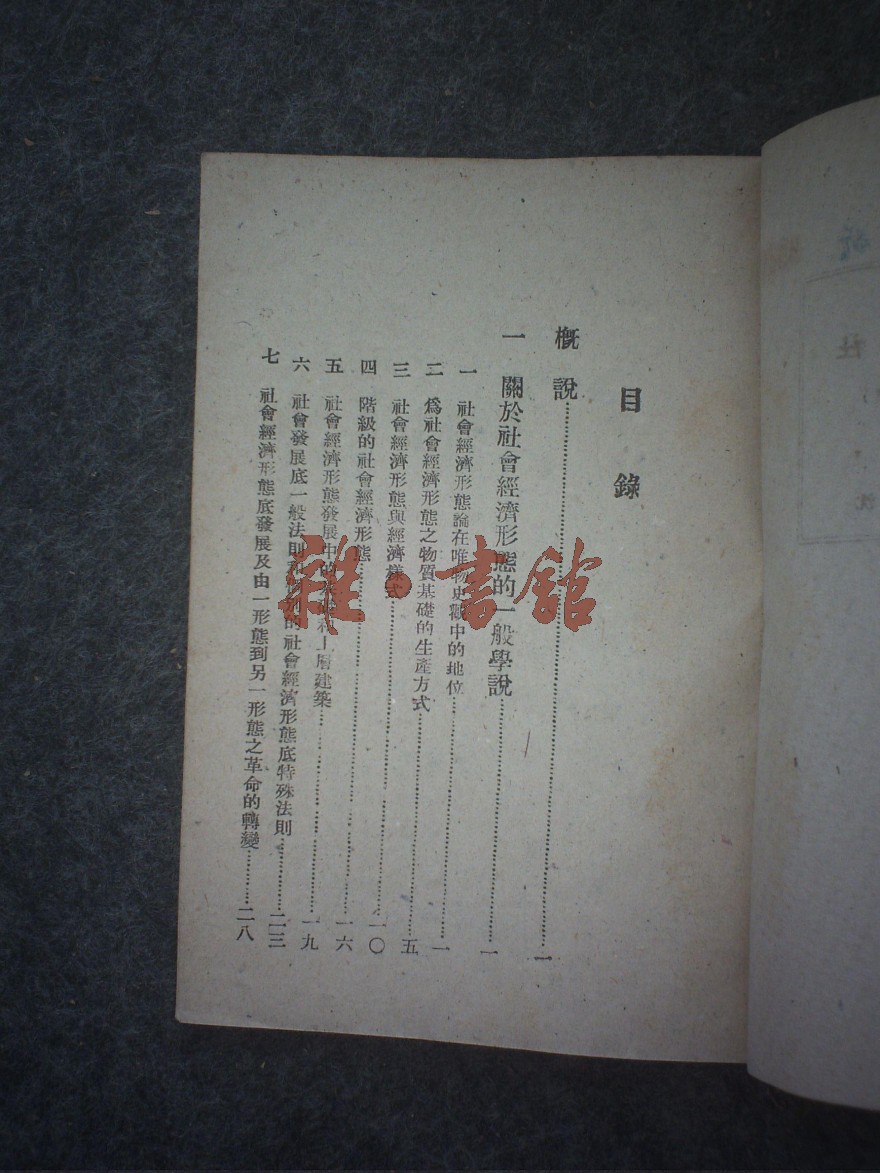 目錄
概說……一
一 關於社會經濟形態的一般學說……一
一 社會經濟形態論在唯物史觀中的地位……一
二 爲社會經濟形態之物質基礎的生產方式……五
三 社會經濟形態與經濟樣式……一〇
四 階級的社會經濟形態……一六
五 社會經濟形態發展中的和上層建築……一九
六 社會發展底一般法則和個別的社會經濟形態底特殊法則……二三
七 社會經濟形態底發展及由一形態到另一形態之革命的轉變……二八
雜·書館